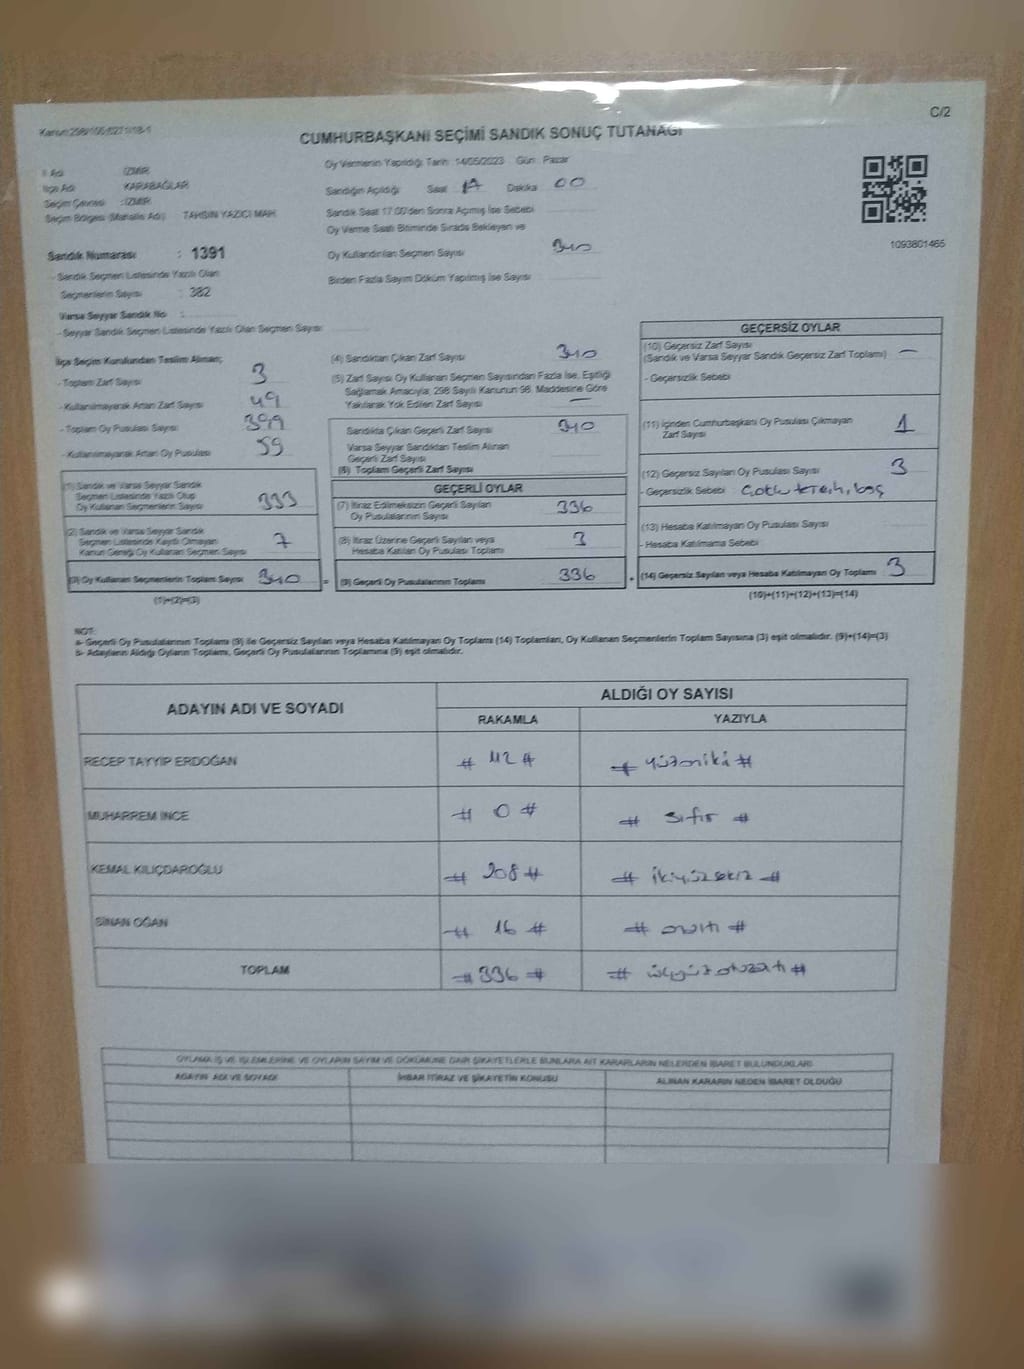 C/2
CUMHURBAŞKANI SEÇİMİ SANDIK SONUÇ TUTANAĞI
İl Adı İZMİR
İlçe Adı KARABAĞLAR
Seçim Çevresi : İZMİR
Seçim Bölgesi (Mahalle Adı) TAHSİN YAZICI MAH.
Sandık Numarası : 1391
- Sandık Seçmen Listesinde Yazılı Olan
Seçmenlerin Sayısı : 382
Varsa Seyyar Sandık No :
- Seyyar Sandık Seçmen Listesinde Yazılı Olan Seçmen Sayısı :
Oy Vermenin Yapıldığı Tarih : 14/05/2023 Gün : Pazar
Sandığın Açıldığı Saat 17 Dakika 00
Sandık Saat 17:00'den Sonra Açılmış İse Sebebi
Oy Verme Saati Bitiminde Sırada Bekleyen ve
Oy Kullandırılan Seçmen Sayısı 340
Birden Fazla Sayım Döküm Yapılmış İse Sayısı
1093801465
İlçe Seçim Kurulundan Teslim Alınan;
- Toplam Zarf Sayısı 3
- Kullanılmayarak Artan Zarf Sayısı 49
- Toplam Oy Pusulası Sayısı 399
- Kullanılmayarak Artan Oy Pusulası 59
(1) Sandık ve Varsa Seyyar Sandık
Seçmen Listesinde Yazılı Olup
Oy Kullanan Seçmenlerin Sayısı 333
(2) Sandık ve Varsa Seyyar Sandık
Seçmen Listesinde Kayıtlı Olmayan
Kanun Gereği Oy Kullanan Seçmen Sayısı 7
(3) Oy Kullanan Seçmenlerin Toplam Sayısı 340 =
(1)+(2)=(3)
(4) Sandıktan Çıkan Zarf Sayısı 340
(5) Zarf Sayısı Oy Kullanan Seçmen Sayısından Fazla İse, Eşitliği
Sağlamak Amacıyla, 298 Sayılı Kanunun 98. Maddesine Göre
Yakılarak Yok Edilen Zarf Sayısı —
Sandıkta Çıkan Geçerli Zarf Sayısı 340
Varsa Seyyar Sandıktan Teslim Alınan
Geçerli Zarf Sayısı
(6) Toplam Geçerli Zarf Sayısı
GEÇERLİ OYLAR
(7) İtiraz Edilmeksizin Geçerli Sayılan
Oy Pusulalarının Sayısı 336
(8) İtiraz Üzerine Geçerli Sayılan veya
Hesaba Katılan Oy Pusulası Toplamı 3
(9) Geçerli Oy Pusulalarının Toplamı 336 +
GEÇERSİZ OYLAR
(10) Geçersiz Zarf Sayısı
(Sandık ve Varsa Seyyar Sandık Geçersiz Zarf Toplamı) —
- Geçersizlik Sebebi
(11) İçinden Cumhurbaşkanı Oy Pusulası Çıkmayan
Zarf Sayısı 1
(12) Geçersiz Sayılan Oy Pusulası Sayısı 3
- Geçersizlik Sebebi Çoklu tercih, boş
(13) Hesaba Katılmayan Oy Pusulası Sayısı
- Hesaba Katılmama Sebebi
(14) Geçersiz Sayılan veya Hesaba Katılmayan Oy Toplamı 3
(10)+(11)+(12)+(13)=(14)
NOT:
a- Geçerli Oy Pusulalarının Toplamı (9) ile Geçersiz Sayılan veya Hesaba Katılmayan Oy Toplamı (14) Toplamları, Oy Kullanan Seçmenlerin Toplam Sayısına (3) eşit olmalıdır. (9)+(14)=(3)
b- Adayların Aldığı Oyların Toplamı, Geçerli Oy Pusulalarının Toplamına (9) eşit olmalıdır.
ADAYIN ADI VE SOYADI ALDIĞI OY SAYISI
RAKAMLA YAZIYLA
RECEP TAYYİP ERDOĞAN # 112 # # yüzoniki #
MUHARREM İNCE # 0 # # sıfır #
KEMAL KILIÇDAROĞLU # 208 # # ikiyüzsekiz #
SİNAN OĞAN # 16 # # onaltı #
TOPLAM # 336 # # üçyüzotuzaltı #
OYLAMA İŞ VE İŞLEMLERİNE VE OYLARIN SAYIM VE DÖKÜMÜNE DAİR ŞİKAYETLERLE BUNLARA AİT KARARLARIN NELERDEN İBARET BULUNDUKLARI
ADAYIN ADI VE SOYADI İHBAR İTİRAZ VE ŞİKAYETİN KONUSU ALINAN KARARIN NEDEN İBARET OLDUĞU